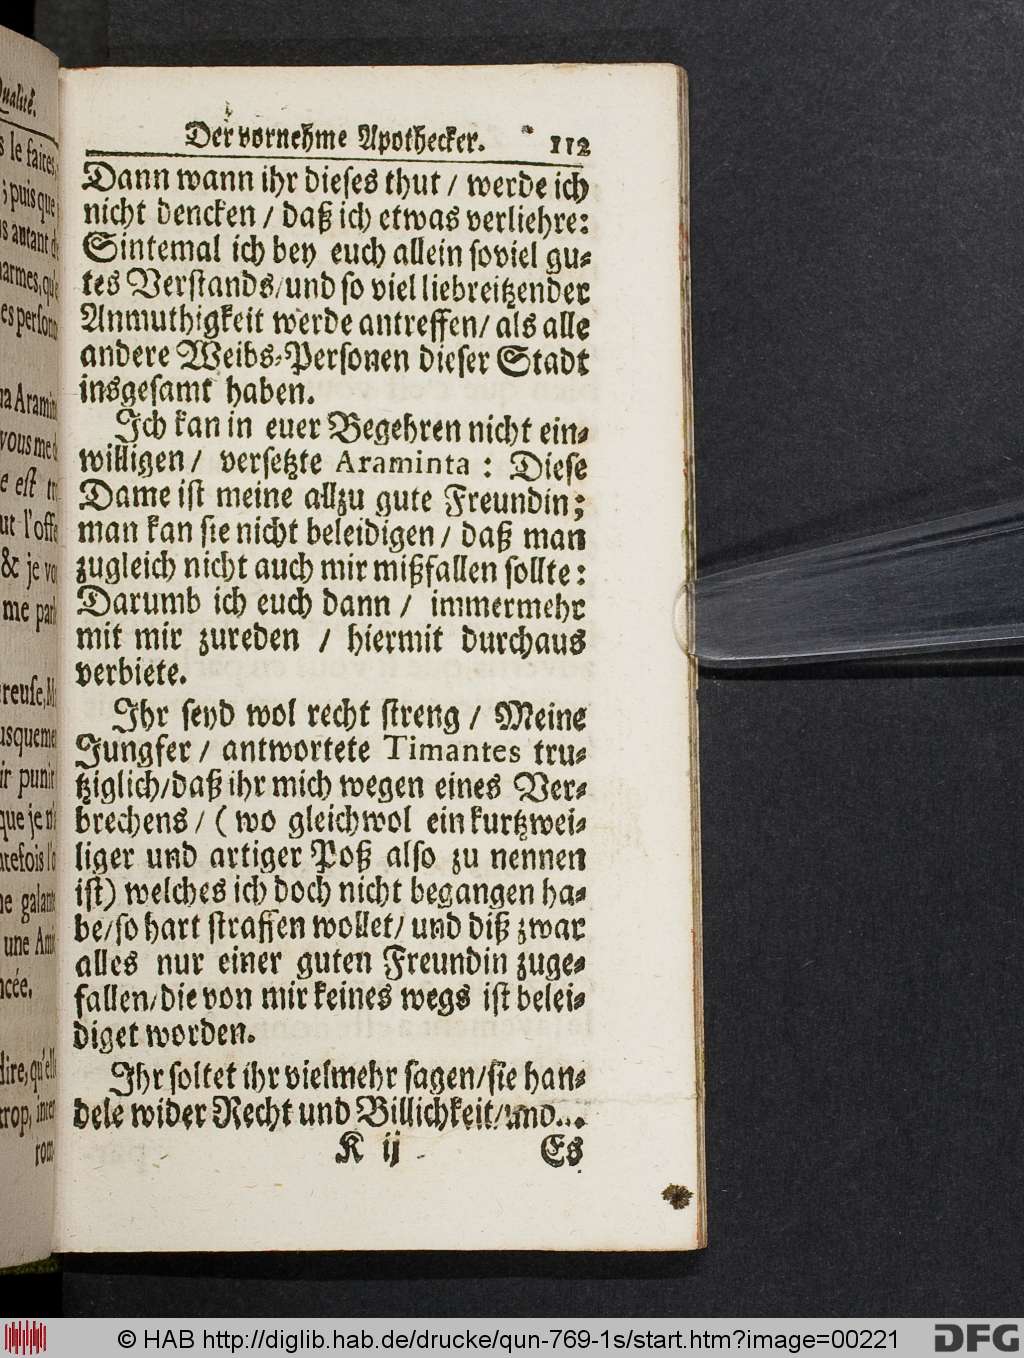 Qualité.
s le faites,
; puisque
s autant d
armes, qu'
es person
na Aramin
vous me d
e est tr
ut l'offe
& je vo
me parl
reuse, M
usqueme
ir punir
que je n'
utefois l'o
ne galante
une Ami
ncée.
dire, qu'elle
trop, inter
rom-
Der vornehme Apothecker. 112
Dann wann ihr dieses thut / werde ich
nicht dencken / daß ich etwas verliehre:
Sintemal ich bey euch allein soviel gu-
tes Verstands/und so viel liebreitzender
Anmuthigkeit werde antreffen/ als alle
andere Weibs-Personen dieser Stadt
insgesamt haben.
Ich kan in euer Begehren nicht ein-
willigen / versetzte Araminta : Diese
Dame ist meine allzu gute Freundin;
man kan sie nicht beleidigen / daß man
zugleich nicht auch mir mißfallen sollte:
Darumb ich euch dann / immermehr
mit mir zureden / hiermit durchaus
verbiete.
Ihr seyd wol recht streng / Meine
Jungfer / antwortete Timantes tru-
tziglich/daß ihr mich wegen eines Ver-
brechens / ( wo gleichwol ein kurtzwei-
liger und artiger Poß also zu nennen
ist) welches ich doch nicht begangen ha-
be/so hart straffen wollet/ und diß zwar
alles nur einer guten Freundin zuge-
fallen/die von mir keines wegs ist belei-
diget worden.
Ihr soltet ihr vielmehr sagen/sie han-
dele wider Recht und Billichkeit/und...
K ij Es
© HAB http://diglib.hab.de/drucke/qun-769-1s/start.htm?image=00221
DFG